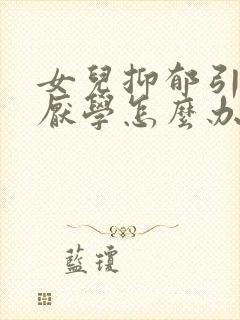 女兒抑郁引
厭學怎麼办
藍瓊